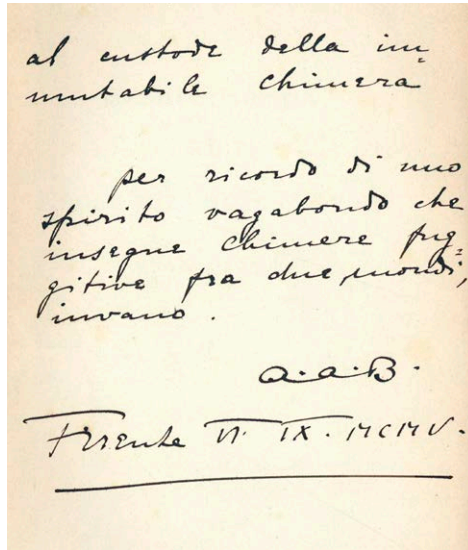 al custode della im=
mutabile Chimera
per ricordo di uno
spirito vagabondo che
insegue Chimere fug=
gitive fra due mondi,
invano.
a.a.B.
Firenze VI. IX. MCMV.